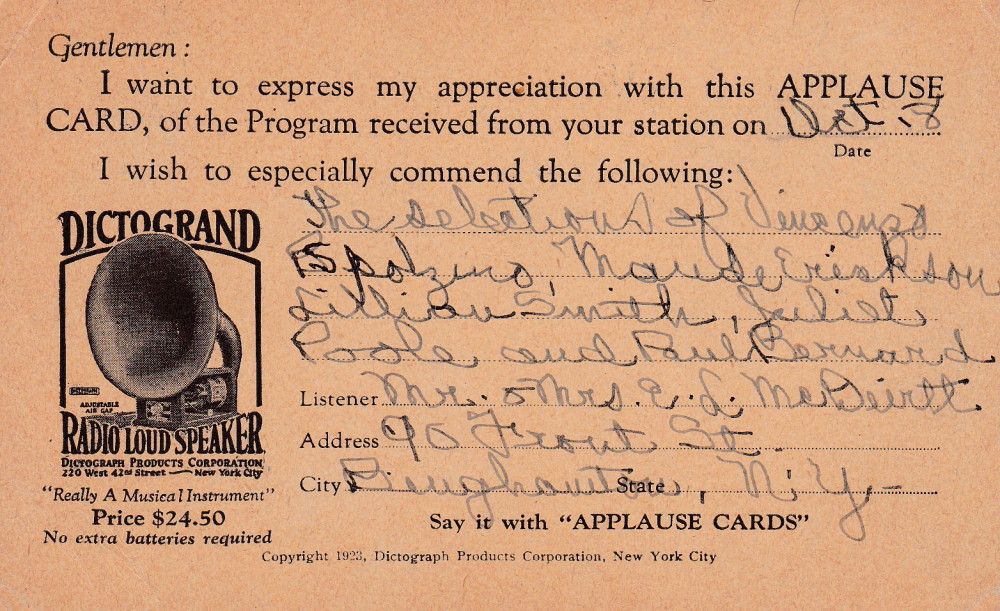 Gentlemen :
I want to express my appreciation with this APPLAUSE
CARD, of the Program received from your station on Oct. 8
Date
I wish to especially commend the following:
The selections of Vincenzo
Spolzino, Maude Erickson
Lillian Smith, Juliet
Poole, and Paul Bernard
DICTOGRAND
ADJUSTABLE
AIR GAP
RADIO LOUD SPEAKER
DICTOGRAPH PRODUCTS CORPORATION
220 West 42nd Street — New York City
"Really A Musical Instrument"
Price $24.50
No extra batteries required
Listener Mr. & Mrs. E. L. McDevitt
Address 90 Front St
City Binghamton State, N.Y.-
Say it with "APPLAUSE CARDS"
Copyright 1923, Dictograph Products Corporation, New York City